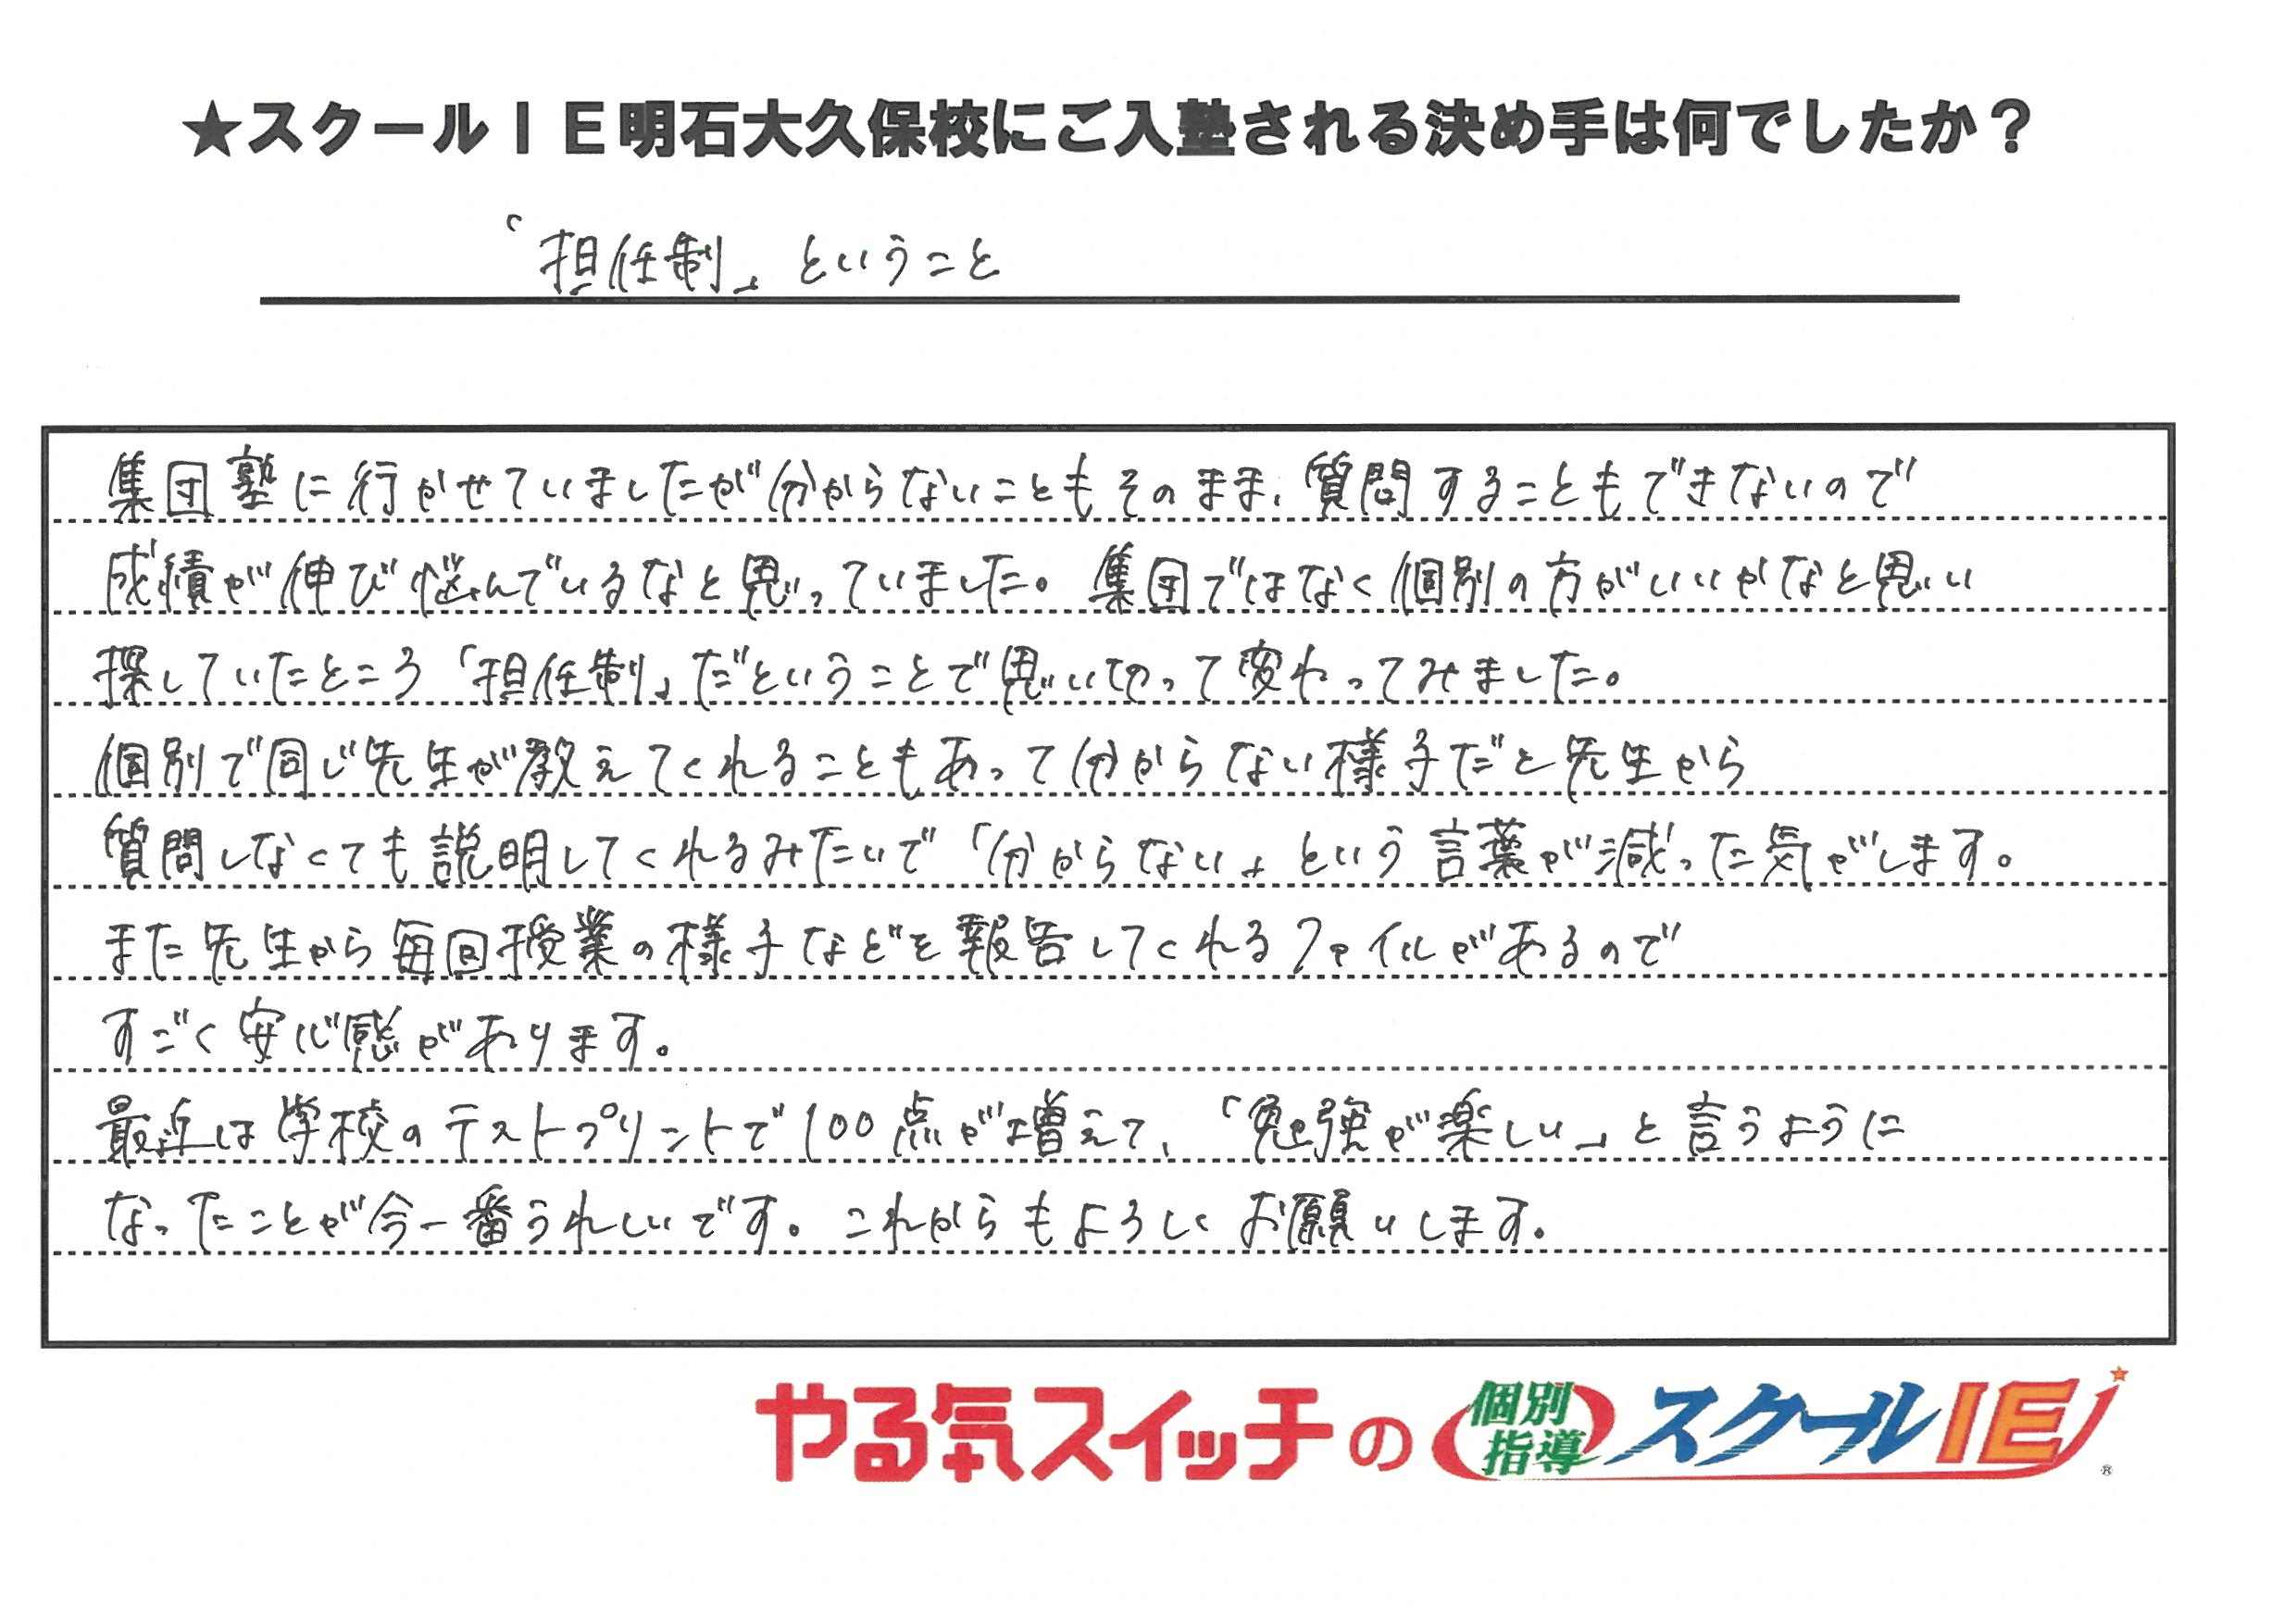 ★スクールＩＥ明石大久保校にご入塾される決め手は何でしたか？
「担任制」ということ
集団塾に行かせていましたが分からないこともそのまま、質問することもできないので
成績が伸び悩んでいるなと思っていました。集団ではなく個別の方がいいかなと思い
探していたところ「担任制」だということで思い切って変わってみました。
個別で同じ先生が教えてくれることもあって分からない様子だと先生から
質問しなくても説明してくれるみたいで「分からない」という言葉が減った気がします。
また先生から毎回授業の様子などを報告してくれるファイルがあるので
すごく安心感があります。
最近は学校のテストプリントで100点が増えて、「勉強が楽しい」と言うように
なったことが今一番うれしいです。これからもよろしくお願いします。
やる気スイッチの 個別指導 スクールIE ®